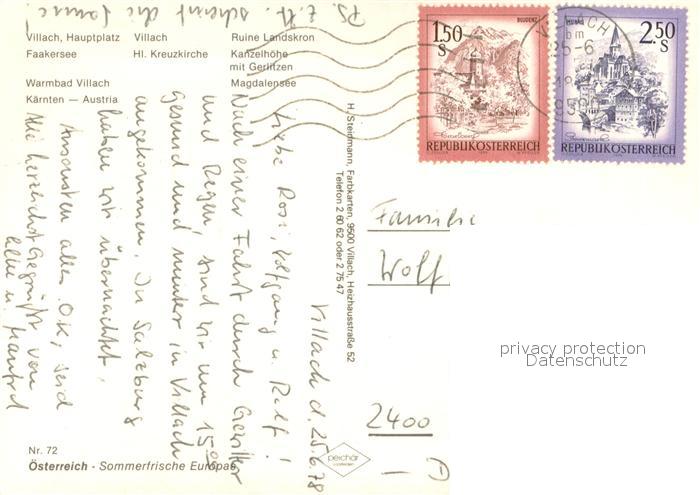 PS. z.Zt. scheint die Sonne!
Villach, Hauptplatz Villach Ruine Landskron
Faakersee Hl. Kreuzkirche Kanzelhöhe
mit Gerlitzen
Warmbad Villach Magdalensee
Kärnten — Austria
Villach d. 25.6.78
Liebe Rosi, Wolfgang u. Ralf!
Nach einer Fahrt durch Gewitter
und Regen, sind wir um 15⁰⁰
gesund und munter in Villach
angekommen. In Salzburg
haben wir übernachtet.
Ansonsten alles O.K., seid
alle herzlichst gegrüßt von
u. Manfred
H. Steidmann, Farbkarten, 9500 Villach, Heizhausstraße 52
Telefon 2 60 62 oder 2 75 47
1.50
S
BLUDENZ
REPUBLIK ÖSTERREICH
2.50
S
MURAU
REPUBLIK ÖSTERREICH
VILLACH
bm
25-6
9500
Familie
Wolf
privacy protection
Datenschutz
2400
Nr. 72
Österreich - Sommerfrische Europas